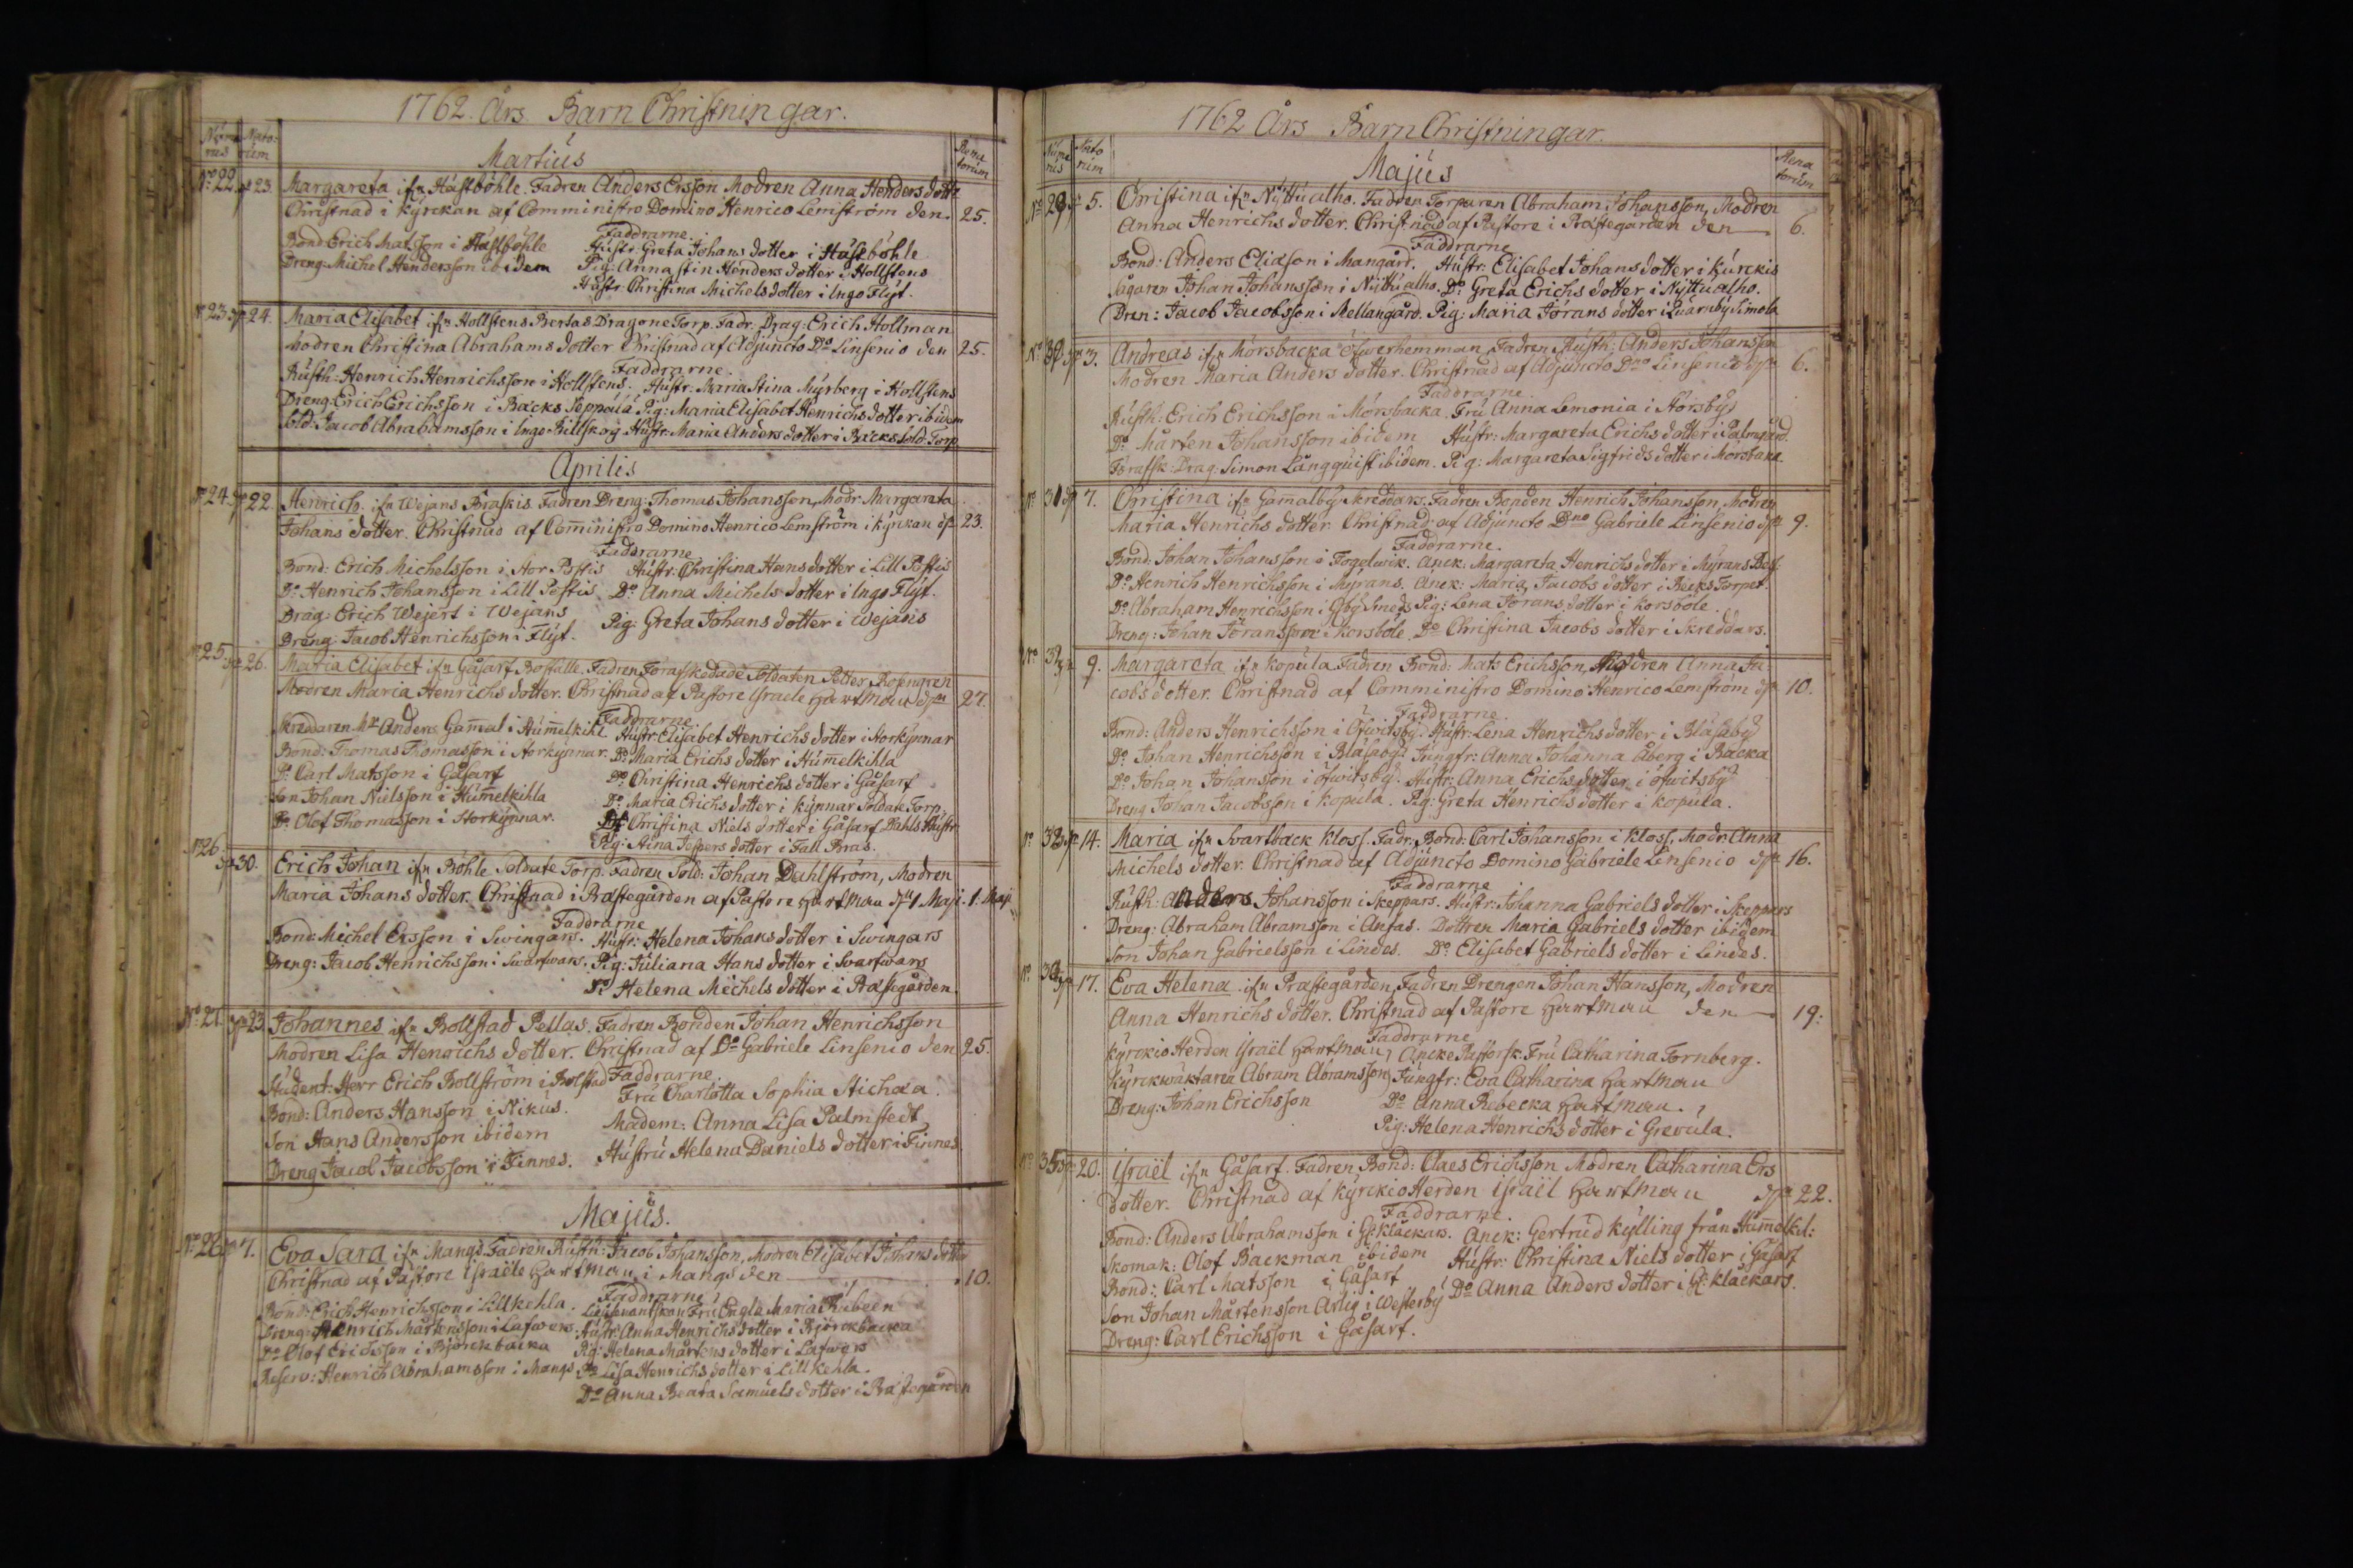 1762. Års Barn Christningar.
Numerus Natorum Renatorum
Martius
No 22. d. 23. Margareta ifn Hästböhle. Fadren Anders Ersson Modren Anna Henders dotte
Christnad i kyrckan af Comministro Domino Henrico Lemström den. 25.
Faddrarne.
Bond Erich Matsson i Hästböhle Hustr: Greta Johans dotter i Hästböhle
Dreng: Michel Hendersson ibidem Pig: Anna stin Henders dotter i Hollstens
Hustr: Christina Michels dotter i Ingo Flyt.
No 23 d. 24. Maria Elisabet ifn Hollstens Bertas Dragone Torp. Fadr. Drag: Erich Hollman
Modren Christina Abrahams dotter Christnad af Adjuncto Do Linsenio den 25.
Faddrarne.
Rusth: Henrich Henrichsson i Hollstens. Hustr: Maria Stina Myrberg i Hollstens
Dreng: Erich Erichsson i Backs Seppälä Pig: Maria Elisabet Henrichs dotter ibidem
Sold: Jacob Abrahamsson i Inge Billskog Hustr: Maria Anders dotter i Backs Sold. Torp
Aprilis
No 24. d. 22. Henrich ifn Wejans Braskis. Fadren Dreng: Thomas Johansson, Modr: Margareta
Johans dotter. Christnad af Comministro Domino Henrico Lemström i kyrckan d. 23.
Faddrarne
Bond: Erich Michelsson i Stor Postis Hustr: Christina Hans dotter i Lill Postis
Do Henrich Johansson i Lill Postis Do Anna Michels dotter i Ingo Flyt.
Drag: Erich Wejert i Wejans Pig: Greta Johans dotter i Wejans
Dreng: Jacob Henrichsson i Flyt.
No 25. d. 26. Maria Elisabet ifn Gåsarf Boställe. Fadren Förafskedade Soldaten Petter Rosengren
Modren Maria Henrichs dotter. Christnad af Pastore Israele Hartman d. 27.
Faddrarne
Skreddaren Mr Anders Gamal i Humelkihl Hustr: Elisabet Henrichs dotter i Storkynnar
Bond: Thomas Thomasson i Storkynnar. Do Maria Erichs dotter i Humelkihla
Do Carl Matsson i Gåsarf Do Christina Henrichs dotter i Gåsarf
Son Johan Nielsson i Humelkihla Do Maria Erichs dotter i Kynnar Soldate Torp
Do Olof Thomasson i Storkynnar. Do Christina Niels dotter i Gåsarf Dahls Hustr
Pig: Stina Jespers dotter i Tall Bras.
No 26 d. 30. Erich Johan ifn Böhle Soldate Torp. Fadren Sold: Johan Dahlström, Modren
Maria Johans dotter. Christnad i Prästegården af Pastore Hartman d. 1 Maji. 1. Maji
Faddrarne
Bond: Michel Ersson i Swingars. Hustr: Helena Johans dotter i Swingars
Dreng: Jacob Henrichsson i Svartwars. Pig: Juliana Hans dotter i Svartwars
Do Helena Michels dotter i Prästegården.
No 27. d. 23. Johannes ifn Bollstad Pellas. Fadren Bonden Johan Henrichsson
Modren Lisa Henrichs dotter. Christnad af Do Gabriele Linsenio den 25.
Faddrarne.
Student: Herr Erich Bollström i Bolstad Fru Charlotta Sophia Aichæa.
Bond: Anders Hansson i Nikus. Madem: Anna Lisa Palmstedt
Son Hans Andersson ibidem Hustru Helena Daniels dotter i Finnes
Dreng Jacob Jacobsson i Finnes.
Majus.
No 28. d. 7. Eva Sara ifn Mangs. Fadren Rusth: Jacob Johansson, Modren Elisabet Johans dotter
Christnad af Pastore Israele Hartman i Mangs den 10.
Faddrarne
Bond: Erich Henrichsson i Lillkehla. Lieutenantskan Fru Engla Maria Rubeen
Dreng: Henrich Mårtensson i Lafwers. Hustr: Anna Henrichs dotter i Björckbacka
Do Olof Erichsson i Björckbacka Pig: Helena Mårtens dotter i Lafwers
Reserv: Henrich Abrahamsson i Mangs Do Lisa Henrichs dotter i Lillkehla.
Do Anna Beata Samuels dotter i Prästegården
1762 Års Barn Christningar.
Numerus Natorum Renatorum
Majus
No 29 d. 5. Christina ifn Nyttualho. Fadren Torparen Abraham Johansson, Modren
Anna Henrichs dotter. Christnad af Pastore i Prästegården den 6.
Faddrarne
Bond: Anders Eliason i Mangård. Hustr: Elisabet Johans dotter i Kurckis
Sågaren Johan Johansson i Nyttualho. Do Greta Erichs dotter i Nyttualho.
Dren: Jacob Jacobsson i Mellangård. Pig: Maria Jörans dotter i Quarnby Simola
No 30 d. 3. Andreas ifn Morsbacka Öfwerhemman Fadren Rusth: Anders Johansson
Modren Maria Anders dotter. Christnad af Adjuncto Dno Linsenio d. 6.
Faddrarne
Rusth: Erich Erichsson i Morsbacka. Fru Anna Lemonia i Storsby
Do Mårten Johansson ibidem Hustr: Margareta Erichs dotter i Palmgård.
Förafsk: Drag: Simon Långquist ibidem. Pig: Margareta Sigfrids dotter i Morsbacka.
No 31 d. 7. Christina ifn Gamalby Skreddars. Fadren Bonden Henrich Johansson, Modren
Maria Henrichs dotter. Christnad af Adjuncto Dno Gabriele Linsenio d. 9.
Faddrarne.
Bond: Johan Johansson i Fogelwik. Anck: Margareta Henrichs dotter i Myrans
Do Henrich Henrichsson i Myrans. Anck: Maria Jacobs dotter i Becks Torpet.
Do Abraham Henrichsson i Gby Smeds Pig: Lena Jörans dotter i Korsböle.
Dreng: Johan Jöransson i Korsböle. Do Christina Jacobs dotter i Skreddars.
No 32 d. 9. Margareta ifn Kopula Fadren Bond: Mats Erichsson, Modren Anna Ja-
cobs dotter. Christnad af Comministro Domino Henrico Lemström d. 10.
Faddrarne.
Bond: Anders Henrichsson i Öfwitsby. Hustr: Lena Henrichs dotter i Blåsaby
Do Johan Henrichsson i Blåsaby. Jungfr: Anna Johanna Åberg i Backa
Do Johan Johansson i Öfwitsby. Hustr: Anna Erichs dotter i Öfwitsby
Dreng Johan Jacobsson i Kopula. Pig: Greta Henrichs dotter i Kopula.
No 33 d. 14. Maria ifn Svartback Kloss. Fadr: Bond: Carl Johansson i Kloss, Modr: Anna
Michels dotter. Christnad af Adjuncto Domino Gabriele Linsenio d. 16.
Faddrarne
Rusth: Anders Johansson i Skeppars. Hustr: Johanna Gabriels dotter i Skeppars
Dreng: Abraham Abramsson i Anfas. Dottren Maria Gabriels dotter ibidem
Son Johan Gabrielsson i Lindes. Do Elisabet Gabriels dotter i Lindes.
No 34 d. 17. Eva Helena ifn Prästegården, Fadren Drengen Johan Hansson, Modren
Anna Henrichs dotter. Christnad af Pastore Hartman den 19.
Faddrarne
Kyrckio Herden Israël Hartman, Ancke Pastorsk: Fru Catharina Fornberg.
Kyrckwäktaren Abram Abramsson, Jungfr: Eva Catharina Hartman
Dreng: Johan Erichsson Do Anna Rebecka Hartman.
Pig: Helena Henrichs dotter i Grevula.
No 35 d. 20. Israël ifn Gåsarf. Fadren Bond: Claes Erichsson Modren Catharina Ers
dotter. Christnad af Kyrckio Herden Israël Hartman d. 22.
Faddrarne.
Bond: Anders Abrahamsson i Gr: Kläckars. Anck: Gertrud Kylling från Humelkil:
Skomak: Olof Backman ibidem Hustr: Christina Niels dotter i Gåsarf
Bond: Carl Matsson i Gåsarf Do Anna Anders dotter i Gr: Kläckars.
Son Johan Mårtensson Arlig i Westerby
Dreng: Carl Erichsson i Gåsarf.